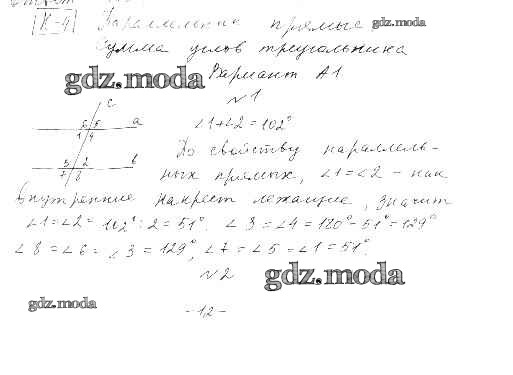 К-4 Параллельные прямые gdz.moda
Сумма углов треугольника
gdz.moda Вариант А1
№1
c
6 5 a ∠1+∠2=102°
1 4
По свойству параллель-
3 2 в
7 8 ных прямых, ∠1=∠2 - как
Внутренние накрест лежащие, значит
∠1=∠2= 102°:2=51°. ∠3=∠4=180°-51°=129°
∠8=∠6=∠3=129°, ∠7=∠5=∠1=51°.
№2
gdz.moda
gdz.moda
-12-